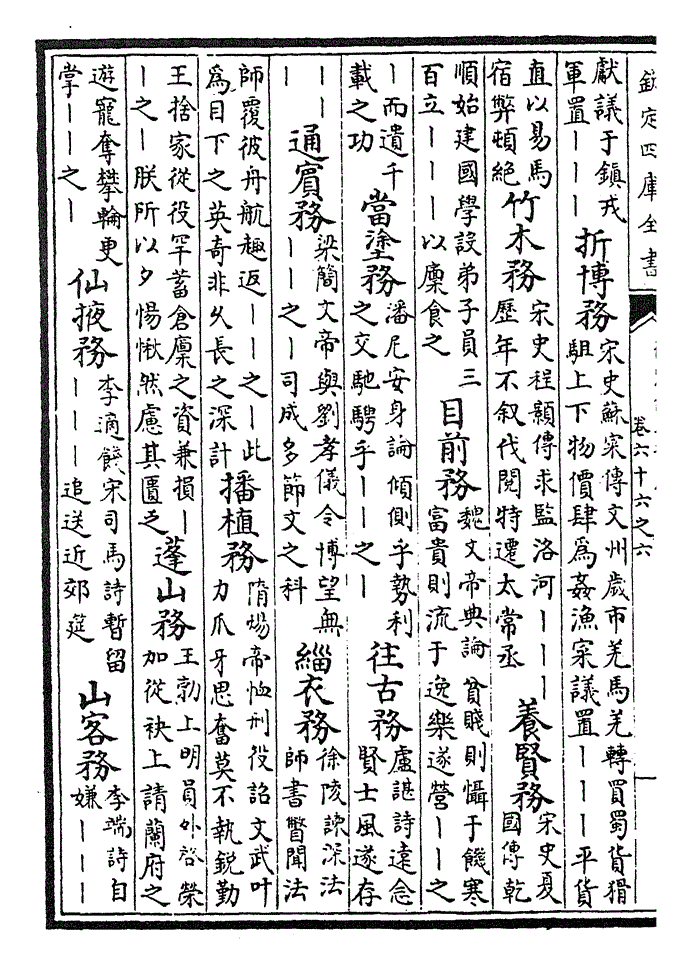 欽定四庫全書
卷六十六之六
獻議于鎮戎
軍置｜｜｜
折博務
宋史蘇寀傳文州歲市羌馬羌轉買蜀貨猾
駔上下物價肆為姦漁寀議置｜｜｜平貨
直以易馬
宿弊頓絶
竹木務
宋史程顥傳求監洛河｜｜｜
歷年不叙伐閱特遷太常丞
養賢務
宋史夏
國傳乾
順始建國學設弟子員三
百立｜｜｜以廩食之
目前務
魏文帝典論貧賤則懾于饑寒
富貴則流于逸樂遂營｜｜之
｜而遺千
載之功
當塗務
潘尼安身論傾側乎勢利
之交馳騁乎｜｜之｜
往古務
盧諶詩遠念
賢士風遂存
｜｜
｜
通賓務
梁簡文帝與劉孝儀令博望無
｜｜之｜司成多節文之科
緇衣務
徐陵諫深法
師書瞥聞法
師覆彼舟航趣返｜｜之｜此
為目下之英奇非久長之深計
播植務
隋煬帝恤刑役詔文武叶
力爪牙思奮莫不執鋭勤
王捨家從役罕蓄倉廩之資兼損｜
｜之｜朕所以夕惕愀然慮其匱乏
蓬山務
王勃上明員外啓榮
加從袂上請蘭府之
遊寵奪攀輪更
掌｜｜之｜
仙掖務
李適餞宋司馬詩暫留
｜｜｜追送近郊筵
山客務
李端詩自
嫌｜｜｜